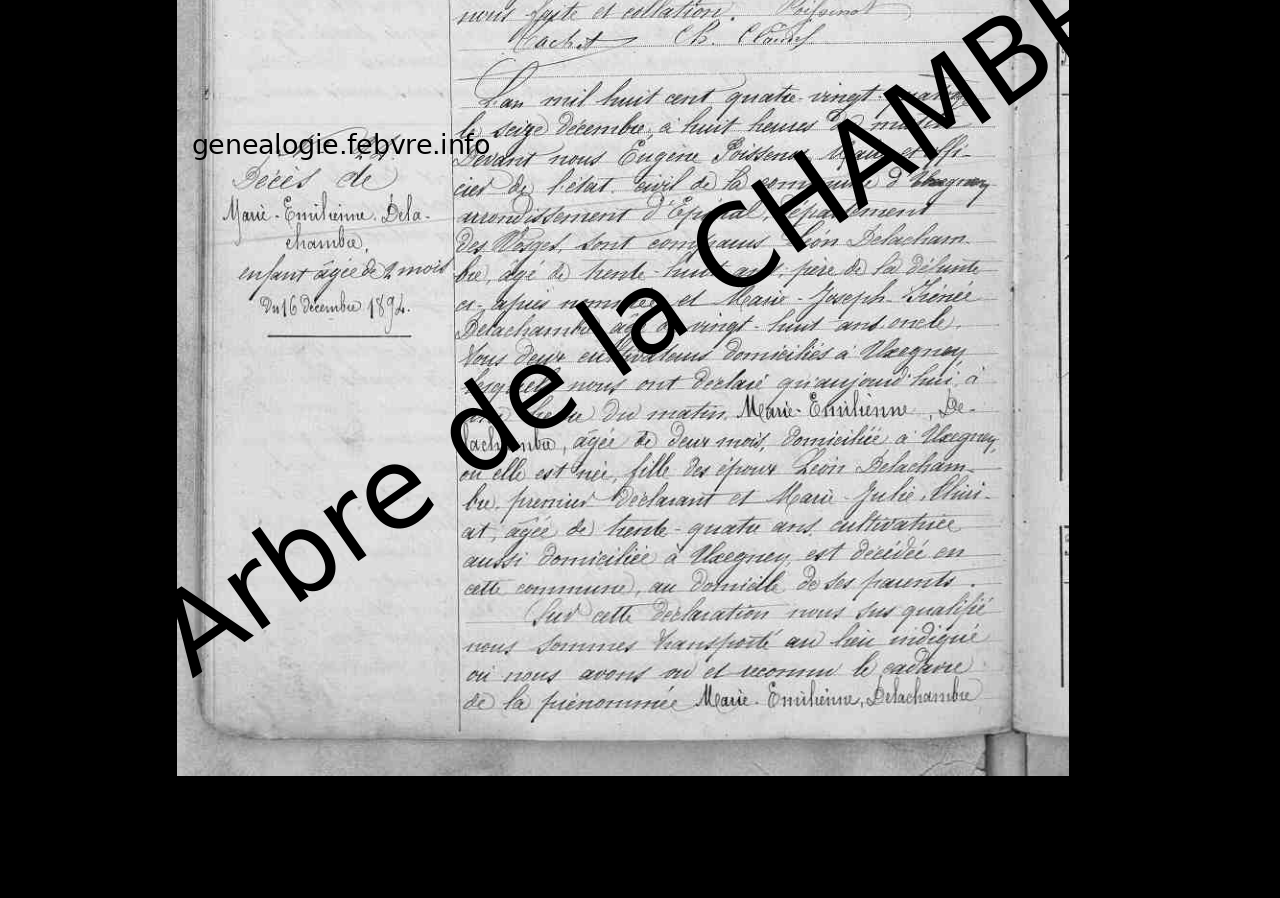 nous faite et collation. Poissenot
Cachet Ch. Claudel
L'an mil huit cent quatre-vingt-
le seize décembre, à huit heures du matin
Devant nous Eugène Poissenot Maire et offi-
cier de l'état civil de la commune d'Uxegney
arrondissement d'Epinal, département
des Vosges, sont comparus Léon Delacham-
bre, âgé de trente-huit ans, père de la défunte
ci-après nommée, et Marie-Joseph-Irénée
Delachambre âgé de vingt-huit ans, oncle,
tous deux cultivateurs domiciliés à Uxegney
lesquels nous ont déclaré qu'aujourd'hui, à
une heure du matin, Marie-Emilienne, De-
lachambre, âgée de deux mois, domiciliée à Uxegney,
où elle est née, fille des époux Léon Delacham-
bre, premier déclarant et Marie-Julie, Thiri-
at, âgée de trente-quatre ans, cultivatrice
aussi domiciliée à Uxegney, est décédée en
cette commune, au domicile de ses parents.
Sur cette déclaration nous sus qualifié
nous sommes transporté au lieu indiqué
où nous avons vu et reconnu le cadavre
de la prénommée Marie-Emilienne, Delachambre
genealogie.febvre.info
Décès de
Marie-Emilienne. Dela-
chambre,
enfant âgée de 2 mois
du 16 décembre 1894.
Arbre de la CHAMBR